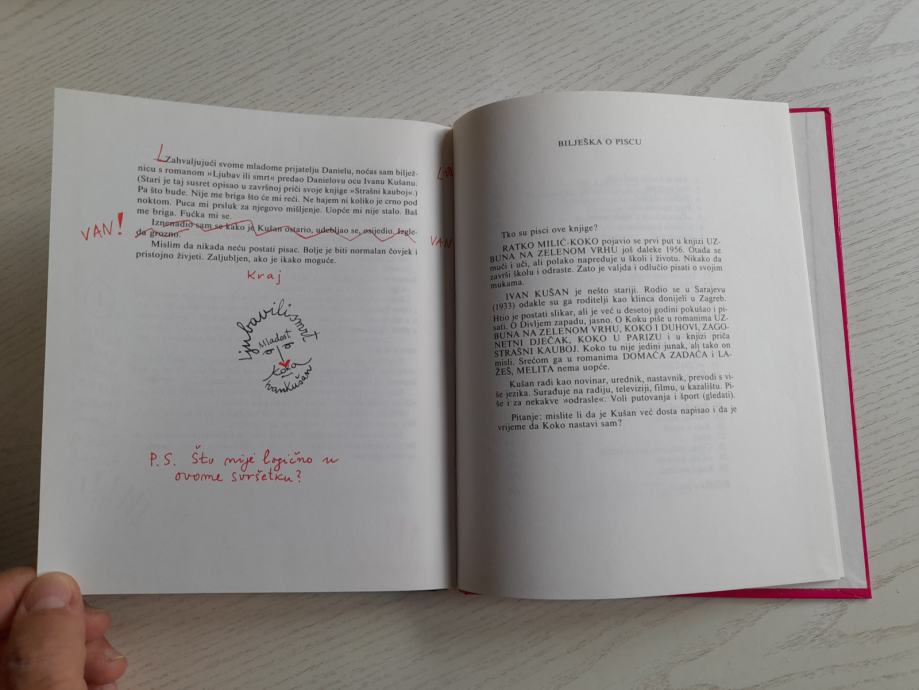 Zahvaljujući svome mladome prijatelju Danielu, noćas sam bilježnicu
nicu s romanom »Ljubav ili smrt« predao Danielovu ocu Ivanu Kušanu.
(Stari je taj susret opisao u završnoj priči svoje knjige »Strašni kauboj«.)
Pa što bude. Nije me briga što će mi reći. Ne hajem ni koliko je crno pod
noktom. Puca mi prsluk za njegovo mišljenje. Uopće mi nije stalo. Baš
me briga. Fućka mi se.
VAN!
Iznenadio sam se kako je Kušan ostario, udebljao se, osijedio. Izgle-
da grozno.
Mislim da nikada neću postati pisac. Bolje je biti normalan čovjek i
pristojno živjeti. Zaljubljen, ako je ikako moguće.
Kraj
Ljubav ili smrt
Mladost
Koko
Ivan Kušan
P.S. Što nije logično u
ovome svršetku?
BILJEŠKA O PISCU
Tko su pisci ove knjige?
RATKO MILIĆ-KOKO pojavio se prvi put u knjizi UZ-
BUNA NA ZELENOM VRHU još daleke 1956. Otada se
muči i uči, ali polako napreduje u školi i životu. Nikako da
završi školu i odraste. Zato je valjda i odlučio pisati o svojim
mukama.
IVAN KUŠAN je nešto stariji. Rodio se u Sarajevu
(1933) odakle su ga roditelji kao klinca donijeli u Zagreb.
Htio je postati slikar, ali je već u desetoj godini pokušao i pi-
sati. O Divljem zapadu, jasno. O Koku piše u romanima UZ-
BUNA NA ZELENOM VRHU, KOKO I DUHOVI, ZAGO-
NETNI DJEČAK, KOKO U PARIZU i u knjizi priča
STRAŠNI KAUBOJ. Koko tu nije jedini junak, ali tako on
misli. Srećom ga u romanima DOMAĆA ZADAĆA i LA-
ŽEŠ, MELITA nema uopće.
Kušan radi kao novinar, urednik, nastavnik, prevodi s vi-
še jezika. Surađuje na radiju, televiziji, filmu, u kazalištu. Pi-
še i za nekakve »odrasle«. Voli putovanja i šport (gledati).
Pitanje: mislite li da je Kušan već dosta napisao i da je
vrijeme da Koko nastavi sam?